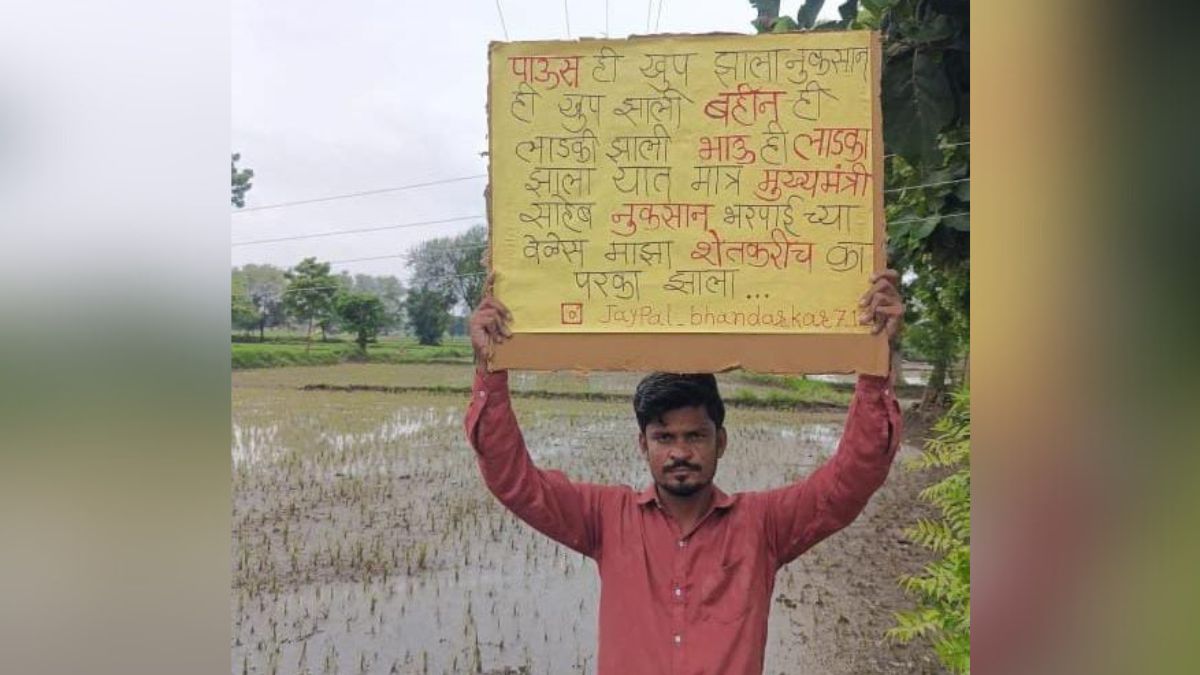 पाऊस ही खुप झाला नुकसान
ही खुप झाली बहीन ही
लाडकी झाली भाऊ ही लाडका
झाला यात मात्र मुख्यमंत्री
साहेब नुकसान भरपाई च्या
वेळेस माझा शेतकरीच का
परका झाला...
JayPal_bhandarkar71